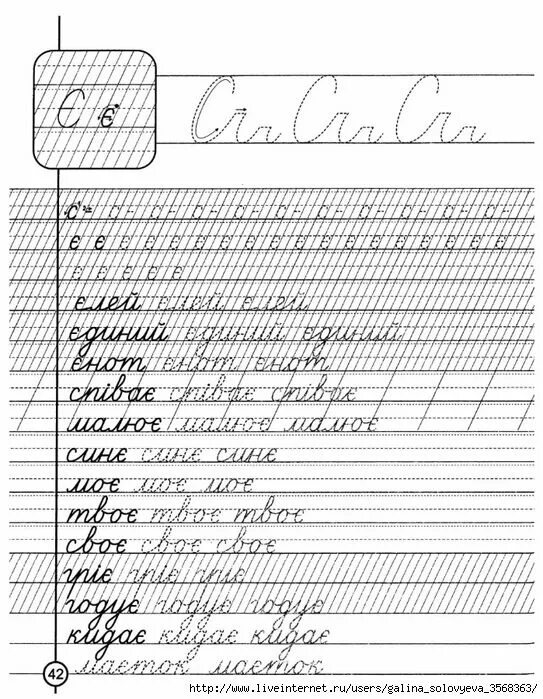 Є є
є є є є є є є є є є є є є є є є є є
є є є є є
єлей єлей єлей
єдиний єдиний єдиний
єнот єнот єнот
співає співає співає
малює малює малює
синє синє синє
моє моє моє
твоє твоє твоє
своє своє своє
гріє гріє гріє
годує годує годує
кидає кидає кидає
маєток маєток
42
http://www.liveinternet.ru/users/galina_solovyeva_3568363/